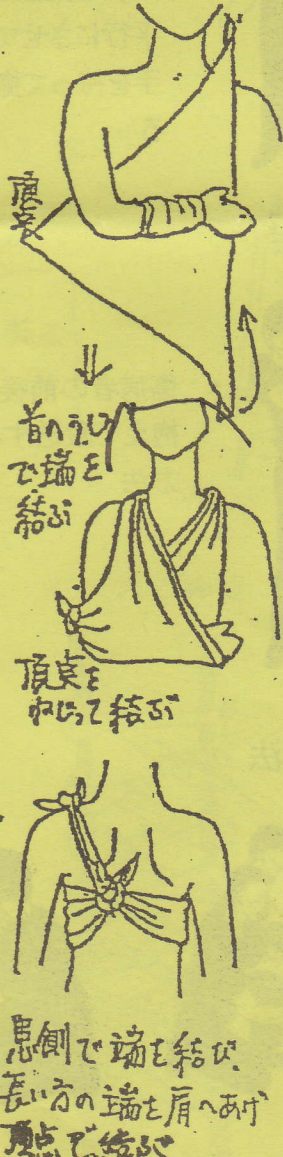 頂点
首へうしろ
で端を
結ぶ
頂点を
ねじって結ぶ
患側で端を結び、
長い方の端を肩へあげ
頂点で結ぶ